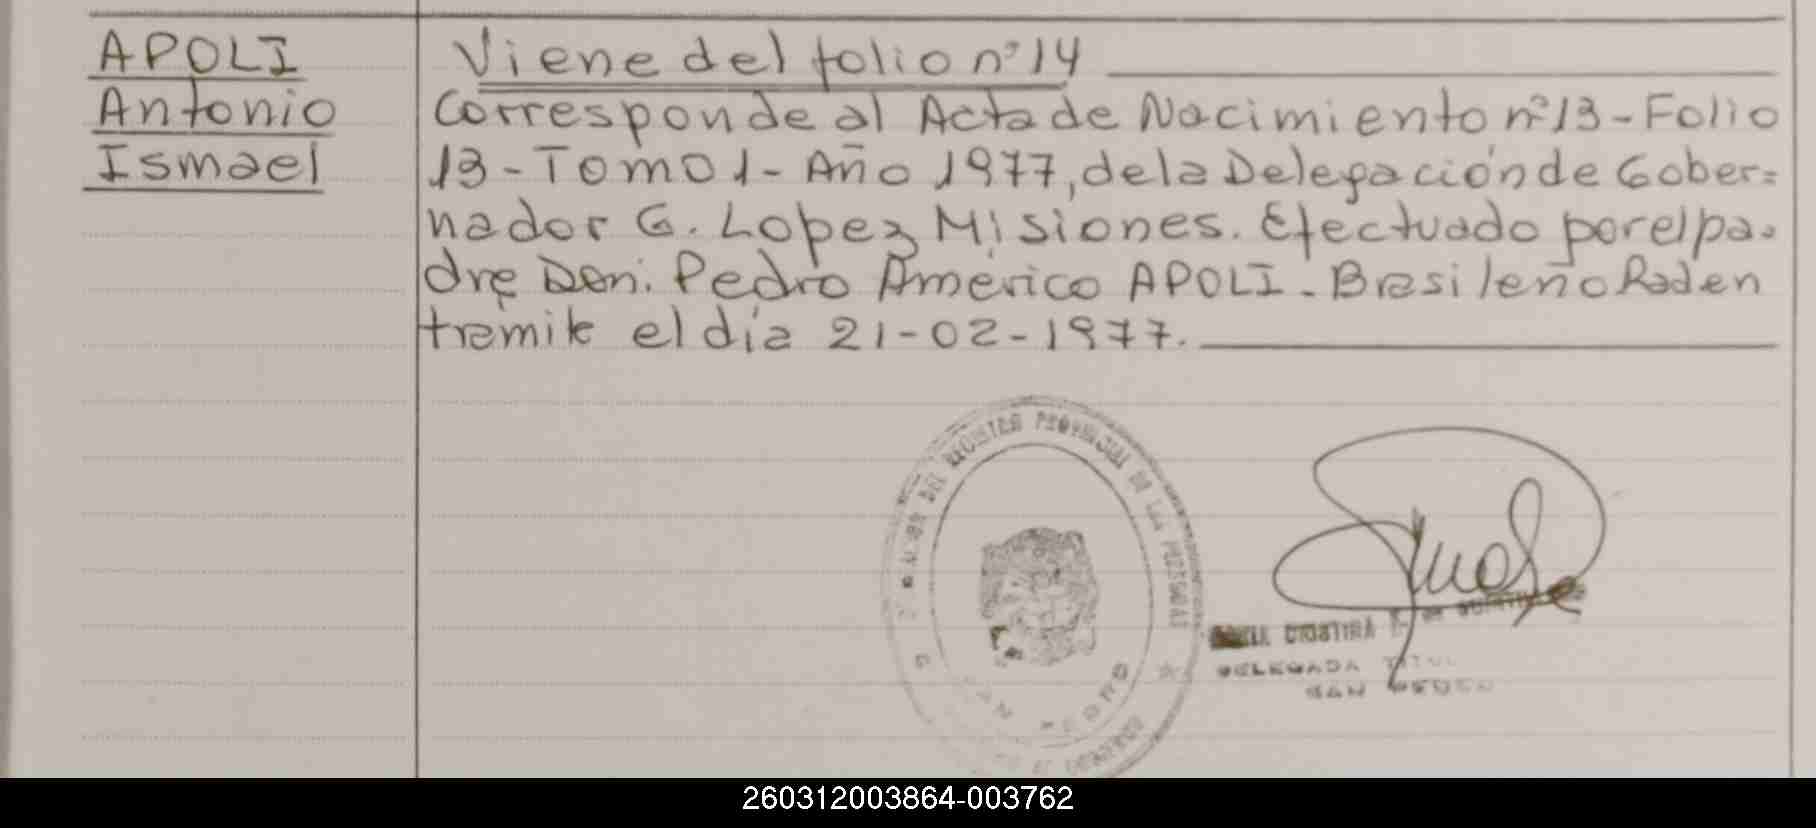 APOLI
Antonio
Ismael
Viene del folio nº 14
Corresponde al Acta de Nacimiento nº 13 - Folio
13 - Tomo 1 - Año 1977, de la Delegación de Gober=
nador G. Lopez Misiones. Efectuado por el pa-
dre Don. Pedro Américo APOLI - Brasileño Rad en
tramite el día 21-02-1977.
DEL REGISTRO PROVINCIAL DE LAS PERSONAS
CRISTINA
DELEGADA TITUL
SAN PEDRO
260312003864-003762